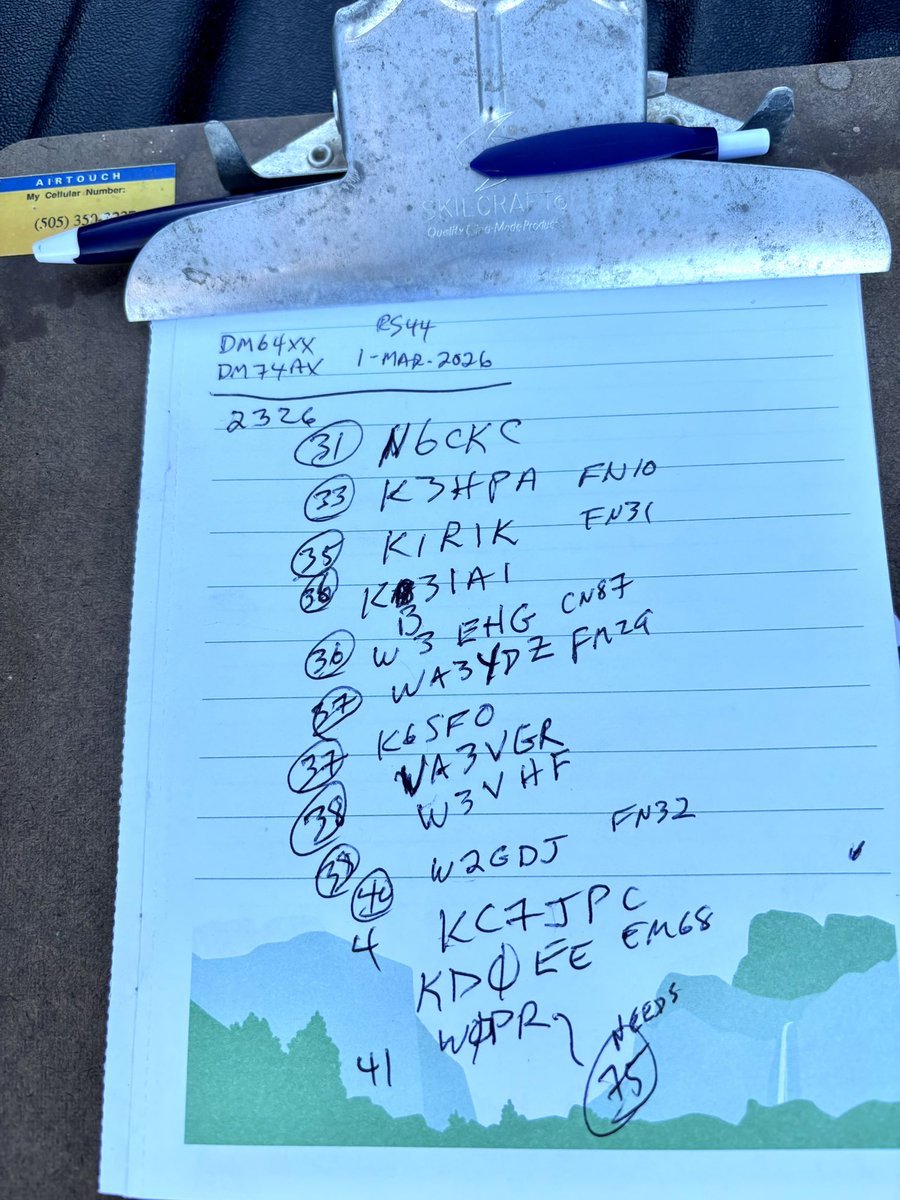 AIRTOUCH
My Cellular Number:
(505) 350
SKILCRAFT
Quality
DM64XX RS44
DM74AX 1-MAR-2026
2326
31 N6CKC
33 K3HPA FN10
35 K1R1K FN31
36 K31A1
B
36 W3EHG CN87
37 WA3YDZ FM29
37 K6SFO
VA3VGR
38 W3VHF
39 W2GDJ FN32
40
KC7JPC
4 KDØEE EM68
WØPR
NEEDS
41 75